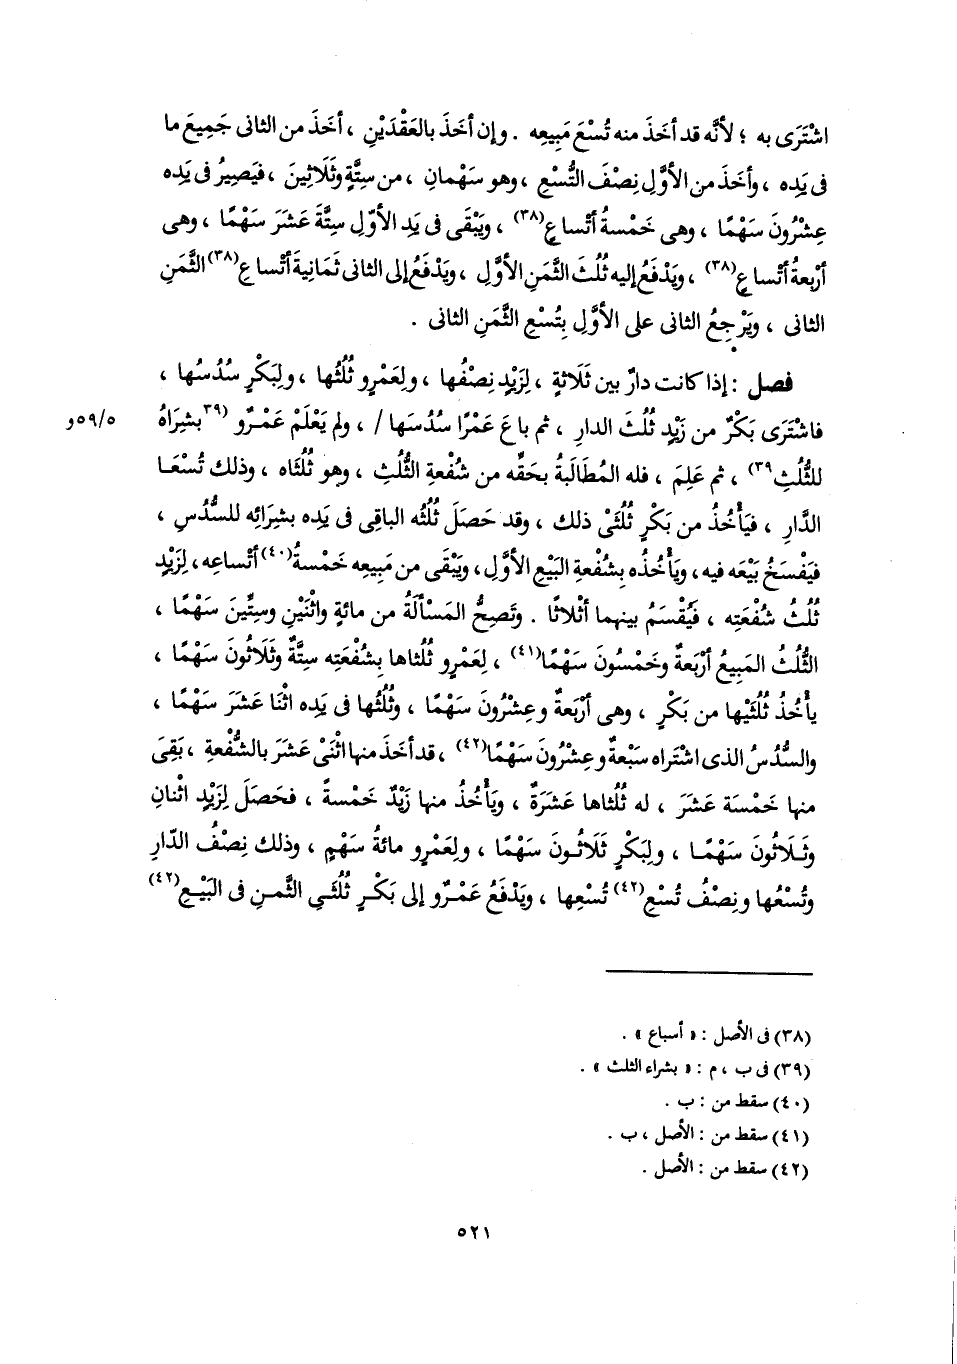 اشْتَرَى به ؛ لأنَّه قد أخَذَ منه تُسْعَ مَبِيعِه . وإن أخَذَ بالعَقْدَيْنِ ، أخَذَ من الثانى جَمِيعَ ما
فى يَدِه ، وأخَذَ من الأوَّلِ نِصْفَ التُّسْعِ ، وهو سَهْمانِ ، من سِتَّةٍ وثَلَاثِينَ ، فيَصِيرُ فى يَدِه
عِشْرُونَ سَهْمًا ، وهى خَمْسةُ أتْساعٍ(٣٨) ، ويَبْقَى فى يَدِ الأوّلِ سِتَّةَ عَشَرَ سَهْمًا ، وهى
أرْبعةُ أتْساعٍ(٣٨) ، ويَدْفَعُ إليه ثُلُثَ الثَّمَنِ الأوَّلِ ، ويَدْفَعُ إلى الثانى ثَمَانِيةَ أتْساعِ(٣٨) الثَّمَنِ
الثانى ، ويَرْجِعُ الثانى على الأوَّلِ بِتُسْعِ الثَّمَنِ الثانى .
فصل : إذا كانت دارٌ بين ثَلَاثةٍ ، لِزَيْدٍ نِصْفُها ، ولِعَمْرٍو ثُلُثُها ، ولِبَكْرٍ سُدُسُها ،
فاشْتَرَى بَكْرٌ من زَيْدٍ ثُلُثَ الدارِ ، ثم باعَ عَمْرًا سُدُسَها / ، ولم يَعْلَمْ عَمْـرٌو (٣٩ بشِرَاهُ ٥/٥٩و
للثُّلُثِ٣٩) ، ثم عَلِمَ ، فله المُطَالَبةُ بحَقِّه من شُفْعةِ الثُّلُثِ ، وهو ثُلُثَاه ، وذلك تُسْعَـا
الدَّارِ ، فيَأْخُذُ من بَكْرٍ ثُلُثَىْ ذلك ، وقد حَصَلَ ثُلُثُه الباقِى فى يَدِه بشِرَائِه للسُّدُسِ ،
فيَفْسَخُ بَيْعَه فيه، ويَأْخُذُه بشُفْعةِ البَيْعِ الأوَّلِ، ويَبْقَى من مَبِيعِه خَمْسةُ(٤٠) أتْساعِه، لِزَيْدٍ
ثُلُثُ شُفْعَتِه ، فيُقْسَمُ بينهما أثْلاثًا . وتَصِحُّ المَسْألَةُ من مائةٍ واثْنَيْنِ وسِتِّينَ سَهْمًا ،
الثُّلُثُ المَبِيعُ أرْبَعةٌ وخَمْسُونَ سَهْمًا(٤١) ، لِعَمْرٍو ثُلُثاها بِشُفْعَتِه سِتَّةٌ وثَلَاثُونَ سَهْمًا ،
يأْخُذُ ثُلُثَيْها من بَكْرٍ ، وهى أرْبَعةٌ وعِشْرُونَ سَهْمًا ، وثُلُثُها فى يَدِه اثْنَا عَشَرَ سَهْمًا ،
والسُّدُسُ الذى اشْتَراه سَبْعةٌ وعِشْرُونَ سَهْمًا(٤٢) ، قد أخَذَ منها اثْنَىْ عَشَرَ بالشُّفْعةِ ، بَقِىَ
منها خَمْسَةَ عَشَرَ ، له ثُلُثاها عَشَرَةٌ ، ويَأْخُذُ منها زَيْدٌ خَمْسةً ، فحَصَلَ لِزَيْدٍ اثْنانِ
وثَـلَاثُونَ سَهْمًـا ، ولِبَكْرٍ ثَلَاثُـونَ سَهْمًا ، ولِعَمْرٍو مائةُ سَهْمٍ ، وذلك نِصْفُ الدّارِ
وتُسْعُها ونِصْفُ تُسْعِ(٤٢) تُسْعِها ، ويَدْفَعُ عَمْـرٌو إلى بَكْـرٍ ثُلُثَـىِ الثَّمـنِ فى البَيْـعِ(٤٢)
(٣٨) فى الأصل : « أسباع » .
(٣٩) فى ب ، م : « بشراء الثلث » .
(٤٠) سقط من : ب .
(٤١) سقط من : الأصل ، ب .
(٤٢) سقط من : الأصل .
٥٢١